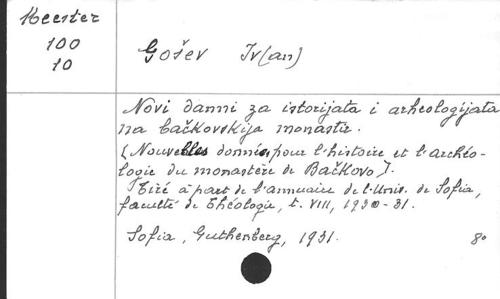 Meester
100
10
Gošev Iv(an)
Novi danni za istorijata i arheologijata
na bačkovskija monastir.
(Nouvelles données pour l'histoire et l'archéo-
logie du monastère de Bačkovo).
Tiré à part de l'annuaire de l'Univ. de Sofia,
faculté de Théologie, t. VIII, 1930-31.
Sofia, Guthenberg, 1931. 8o